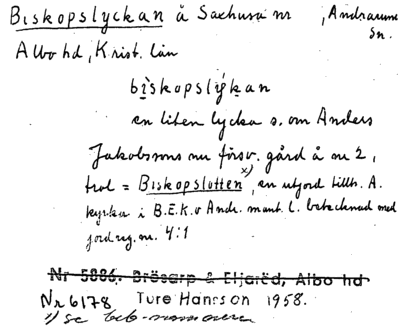 Biskopslyckan å Saxhusa nr , Andrarums
sn.
Albo hd, Krist. län
bìskopslýkan
en liten lycka s. om Anders
Jakobssons nu försv. gård å nr 2,
trol = Biskopslotten x), en utjord tillh. A.
kyrka i B.E.K.o Andr. mant. l. betecknad med
jordreg. nr. 4:1
Nr 5886. Brösarp & Eljaröd, Albo hd
Nr 6178 Ture Hansson 1958.
x) se beb-namnen